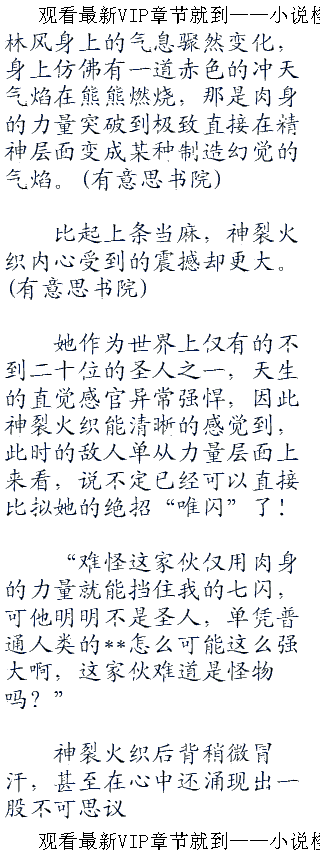 观看最新VIP章节就到——小说
林风身上的气息骤然变化，
身上仿佛有一道赤色的冲天
气焰在熊熊燃烧，那是肉身
的力量突破到极致直接在精
神层面变成某种制造幻觉的
气焰。(有意思书院)
比起上条当麻，神裂火
织内心受到的震撼却更大。
(有意思书院)
她作为世界上仅有的不
到二十位的圣人之一，天生
的直觉感官异常强悍，因此
神裂火织能清晰的感觉到，
此时的敌人单从力量层面上
来看，说不定已经可以直接
比拟她的绝招“唯闪”了！
“难怪这家伙仅用肉身
的力量就能挡住我的七闪，
可他明明不是圣人，单凭普
通人类的**怎么可能这么强
大啊，这家伙难道是怪物
吗？”
神裂火织后背稍微冒
汗，甚至在心中还涌现出一
股不可思议
观看最新VIP章节就到——小说